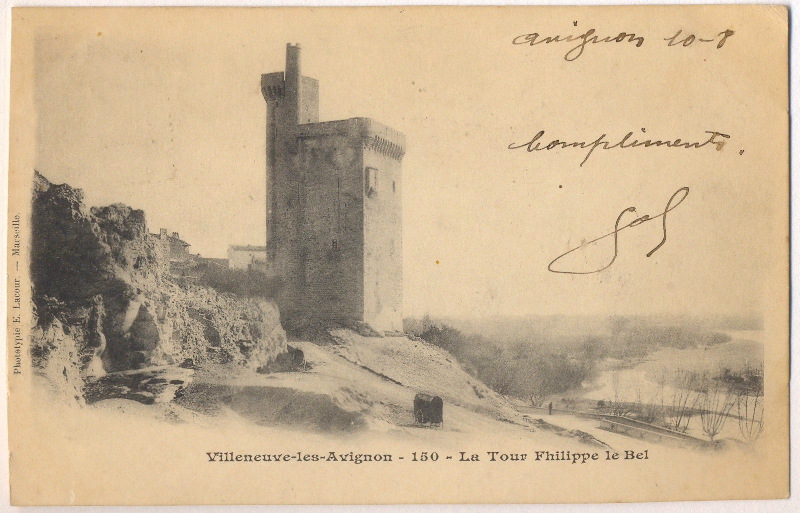 Avignon 10-8
Compliments.
Phototypie E. Lacour. — Marseille.
Villeneuve-les-Avignon - 150 - La Tour Fhilippe le Bel